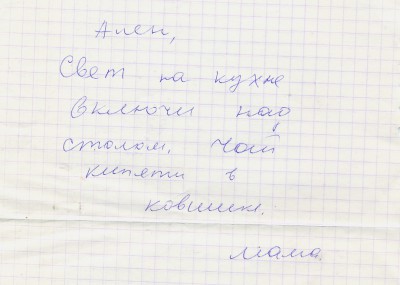 Ален,
Свет на кухне
включи над
столом, чай
кипяти в
ковшике.
мама.